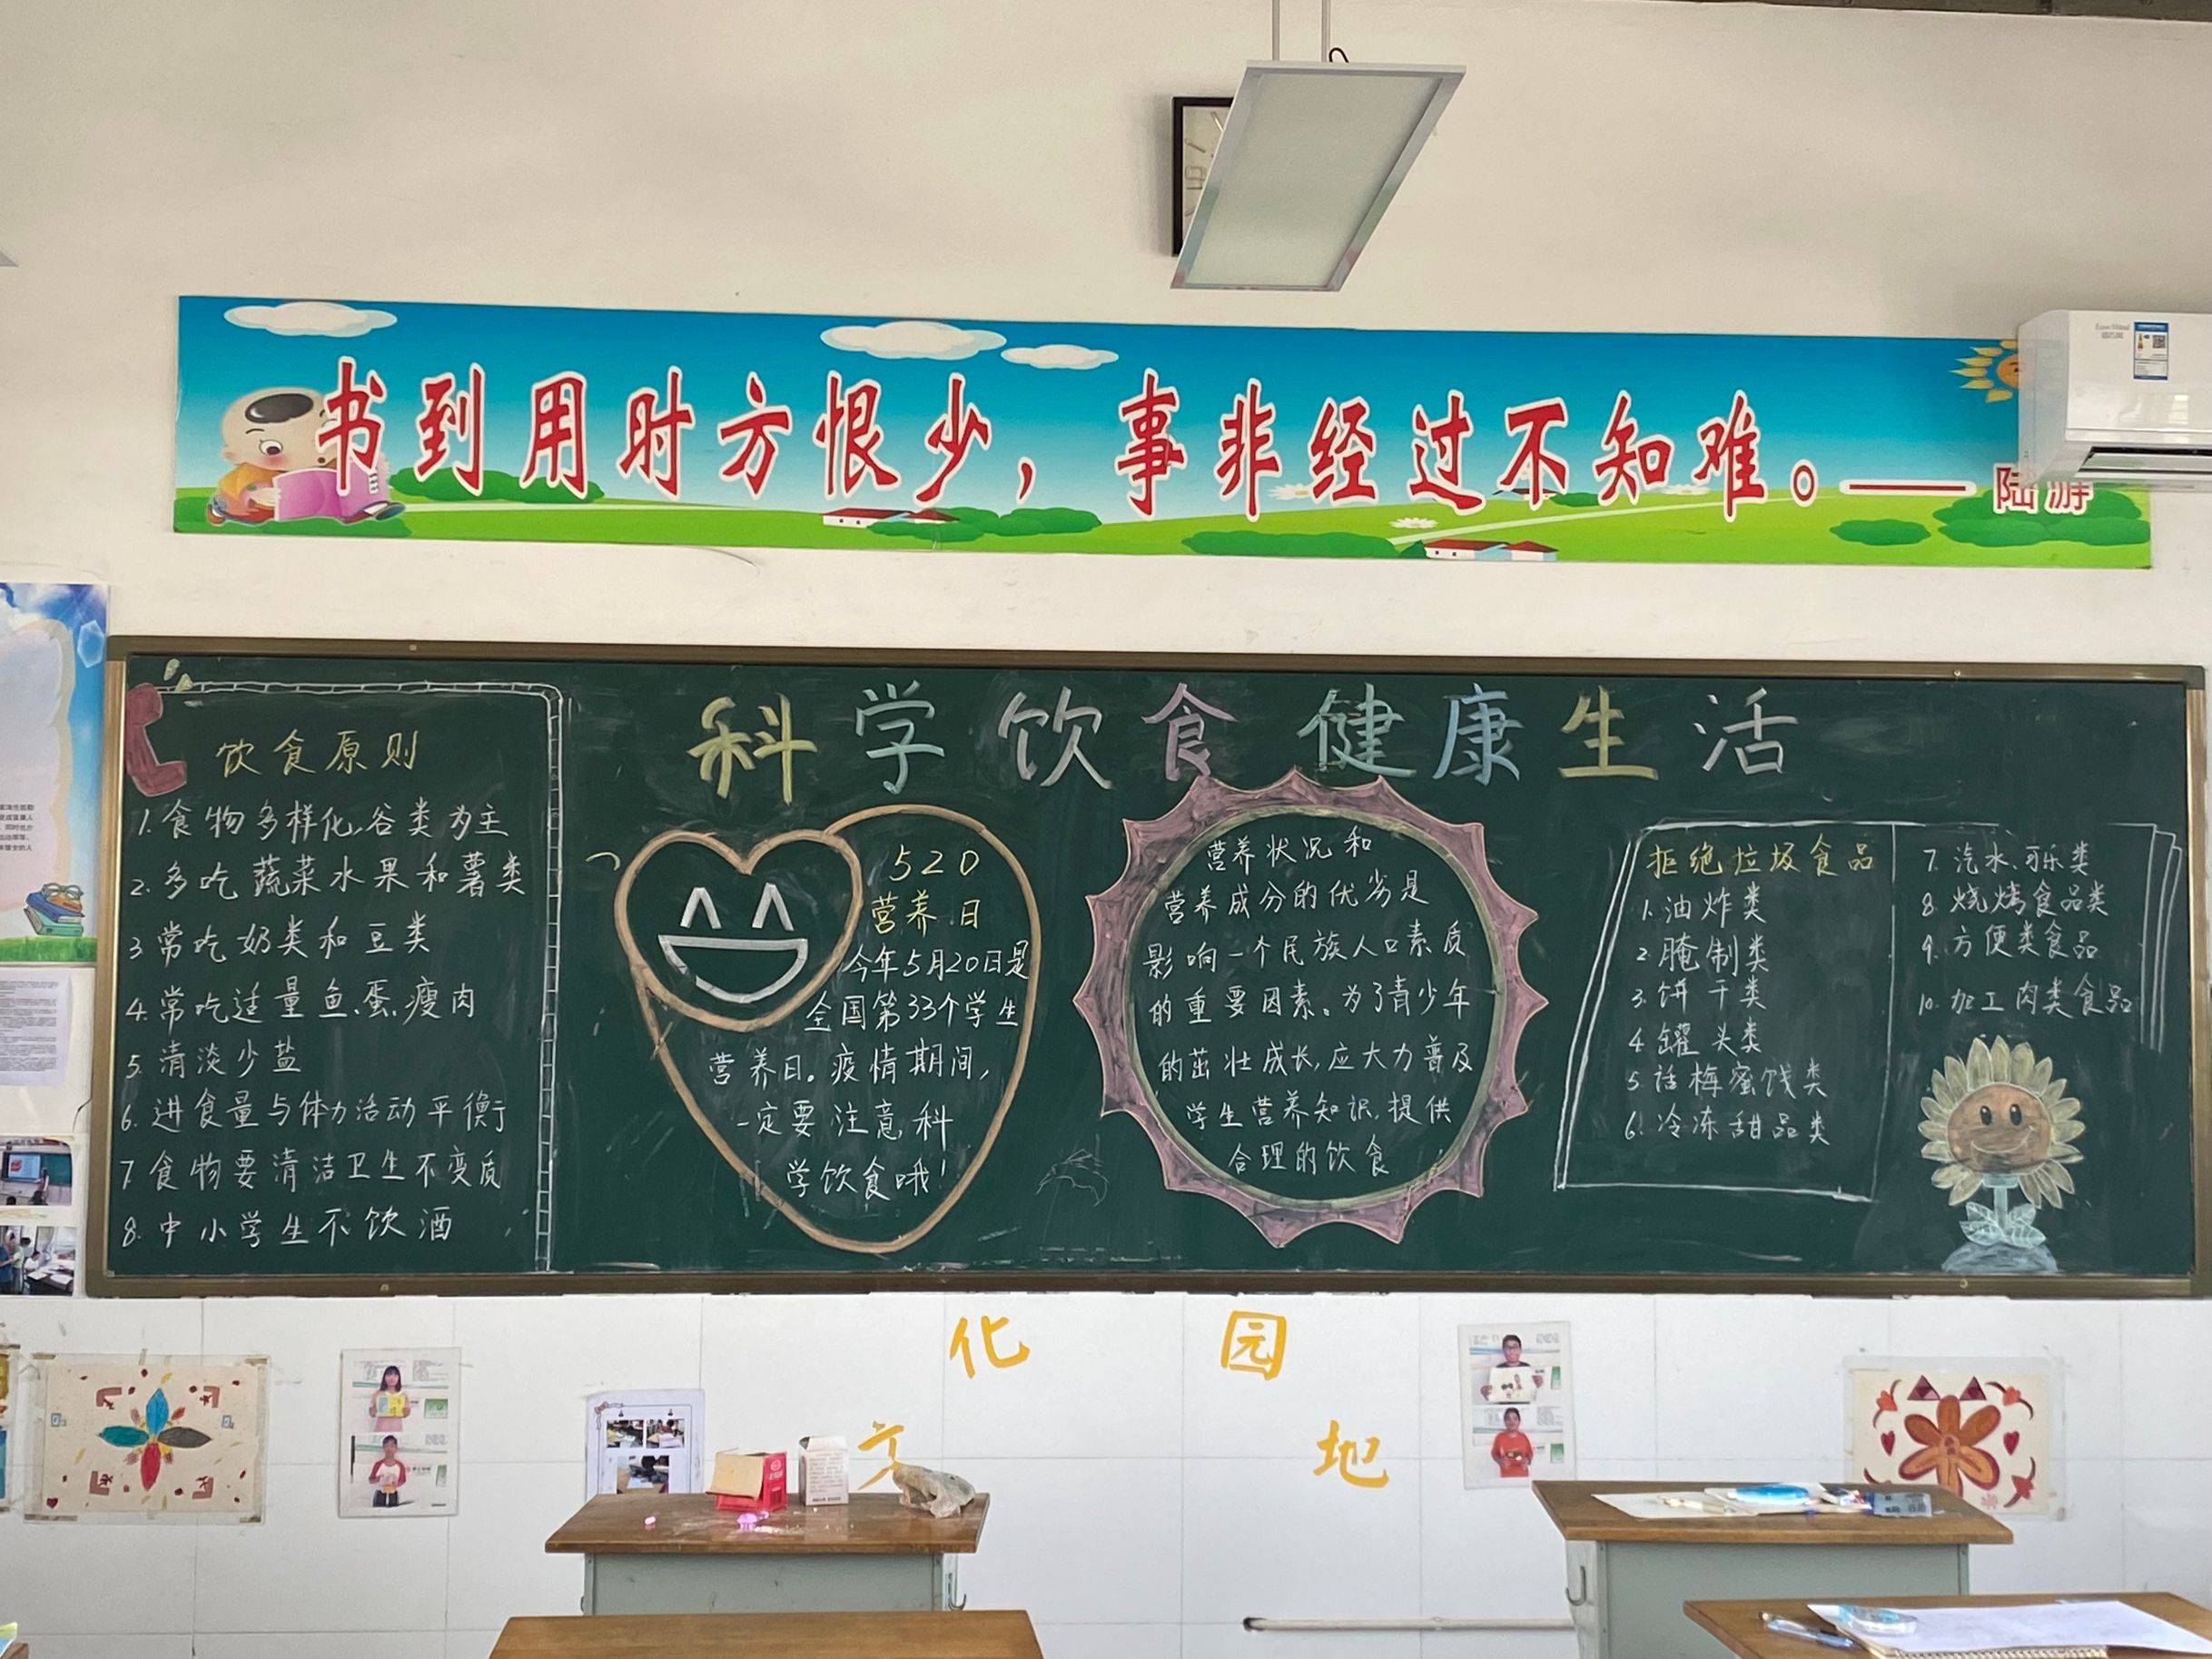 书到用时方恨少，事非经过不知难。——陆游
科学饮食 健康生活
饮食原则
1.食物多样化、谷类为主
2.多吃蔬菜水果和薯类
3.常吃奶类和豆类
4.常吃适量鱼、蛋、瘦肉
5.清淡少盐
6.进食量与体力活动平衡
7.食物要清洁卫生不变质
8.中小学生不饮酒
520
营养日
今年5月20日是
全国第33个学生
营养日。疫情期间，
一定要注意科
学饮食哦！
营养状况和
营养成分的优劣是
影响一个民族人口素质
的重要因素。为了青少年
的茁壮成长，应大力普及
学生营养知识，提供
合理的饮食
拒绝垃圾食品
1.油炸类
2.腌制类
3.饼干类
4.罐头类
5.话梅蜜饯类
6.冷冻甜品类
7.汽水、可乐类
8.烧烤食品类
9.方便类食品
10.加工肉类食品
文化园地